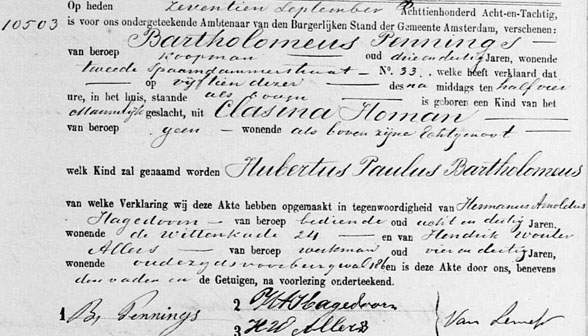 Op heden zeventien September Achttienhonderd Acht-en-Tachtig,
10503 is voor ons ondergeteekende Ambtenaar van den Burgerlijken Stand der Gemeente Amsterdam, verschenen:
Bartholomeus Pennings
van beroep Koopman oud drie en dertig Jaren, wonende
tweede Spaarndammerstraat No. 33. welke heeft verklaard dat
op vijftien dezer des na middags ten half vier
ure, in het huis, staande als boven is geboren een Kind van het
Mannelijk geslacht, uit Clasina Homan
van beroep geen wonende als boven zijne Echtgenoot
welk Kind zal genaamd worden Hubertus Paulus Bartholomeus
van welke Verklaring wij deze Akte hebben opgemaakt in tegenwoordigheid van Hermanus Arnoldus
Hagedoorn van beroep bediende oud acht en dertig Jaren,
wonende de Wittenkade 24 en van Hendrik Wouter
Allers van beroep werkman oud vier en dertig Jaren,
wonende oudezijdsvoorburgwal en is deze Akte door ons, benevens
den vader en de Getuigen, na voorlezing onderteekend.
1 B. Pennings 2 H A Hagedoorn
3 H W Allers